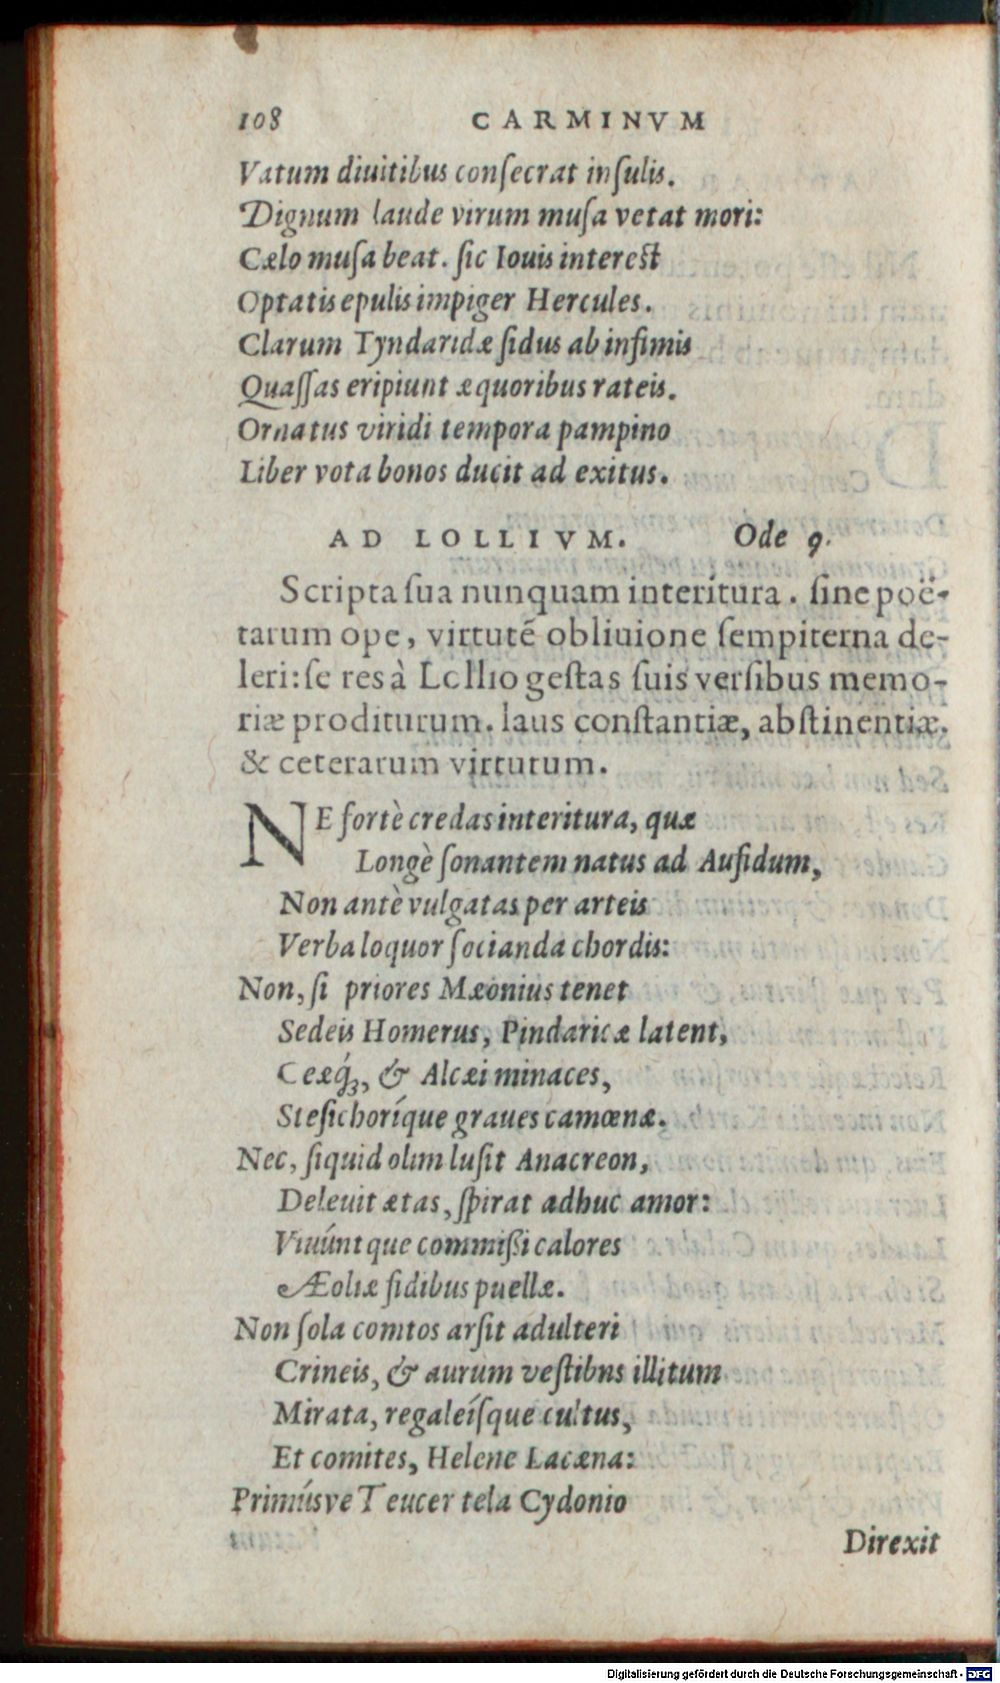 108 CARMINVM
Vatum diuitibus conſecrat inſulis.
Dignum laude virum muſa vetat mori:
Cælo muſa beat. ſic Iouis intereſt
Optatis epulis impiger Hercules.
Clarum Tyndaridæ ſidus ab infimis
Quaſſas eripiunt æquoribus rateis.
Ornatus viridi tempora pampino
Liber vota bonos ducit ad exitus.
AD LOLLIVM. Ode 9.
Scripta ſua nunquam interitura. ſine poë-
tarum ope, virtutē obliuione ſempiterna de-
leri: ſe res à Lollio geſtas ſuis verſibus memo-
riæ proditurum. laus conſtantiæ, abſtinentiæ,
& ceterarum virtutum.
NE fortè credas interitura, quæ
Longè ſonantem natus ad Aufidum,
Non antè vulgatas per arteis
Verba loquor ſocianda chordis:
Non, ſi priores Mæonius tenet
Sedeis Homerus, Pindaricæ latent,
Ceæq́ꝫ, & Alcæi minaces,
Steſichoríque graues camœnæ.
Nec, ſiquid olim luſit Anacreon,
Deleuit ætas, ſpirat adhuc amor:
Viuúntque commißi calores
Æoliæ fidibus puellæ.
Non ſola comtos arſit adulteri
Crineis, & aurum veſtibns illitum
Mirata, regaleíſque cultus,
Et comites, Helene Lacæna:
Primúsve Teucer tela Cydonio
Direxit
Digitalisierung gefördert durch die Deutsche Forschungsgemeinschaft - DFG